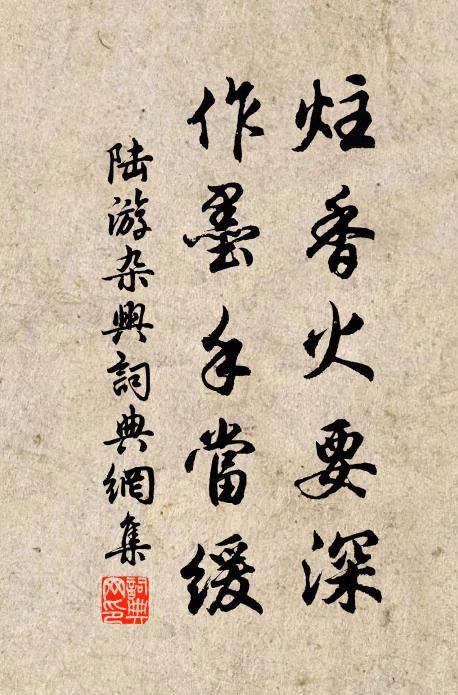 炷香火要深
作墨手當緩
陸游杂興詞典網集
詞典
网印